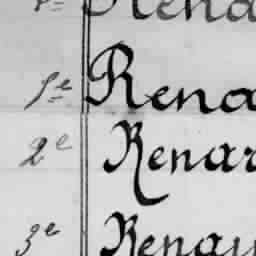 Rena
1e Rena
2e Renar
3e Renau